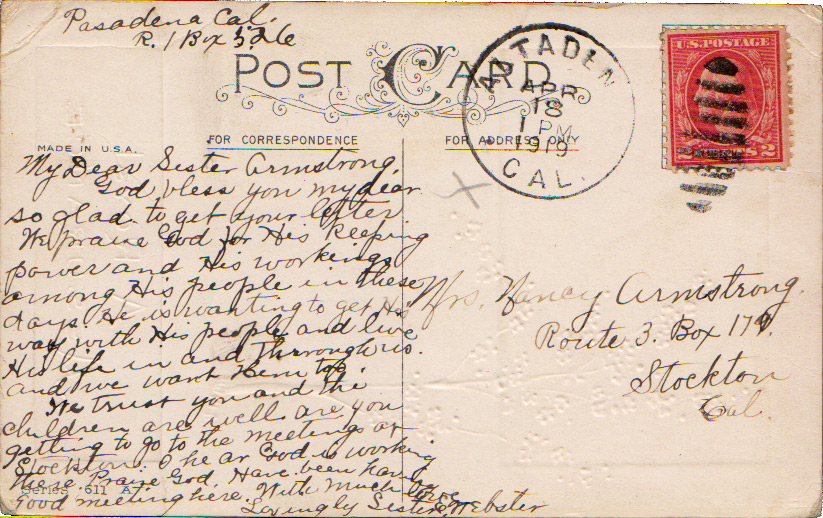 Pasadena Cal.
R. 1 Box 326
POST CARD
ALTADEN
APR
18
1 PM
1919
CAL.
U.S. POSTAGE
2
MADE IN U.S.A.
FOR CORRESPONDENCE
FOR ADDRESS ONLY
My Dear Sister Armstrong.
God bless you my dear
so glad to get your letter.
We praise God for His keeping
power and His workings
among His people in these
days. He is wanting to get His
way with His people and live
His life in and through us.
and we want Him to.
We trust you and the
children are well are you
getting to go to the meetings at
Stockton. I hear God is working
there Praise God. Have been having
good meeting here. With much love
Lovingly Sister Webster
Series 611 A
Mrs. Nancy Armstrong.
Route 3. Box 179.
Stockton
Cal.